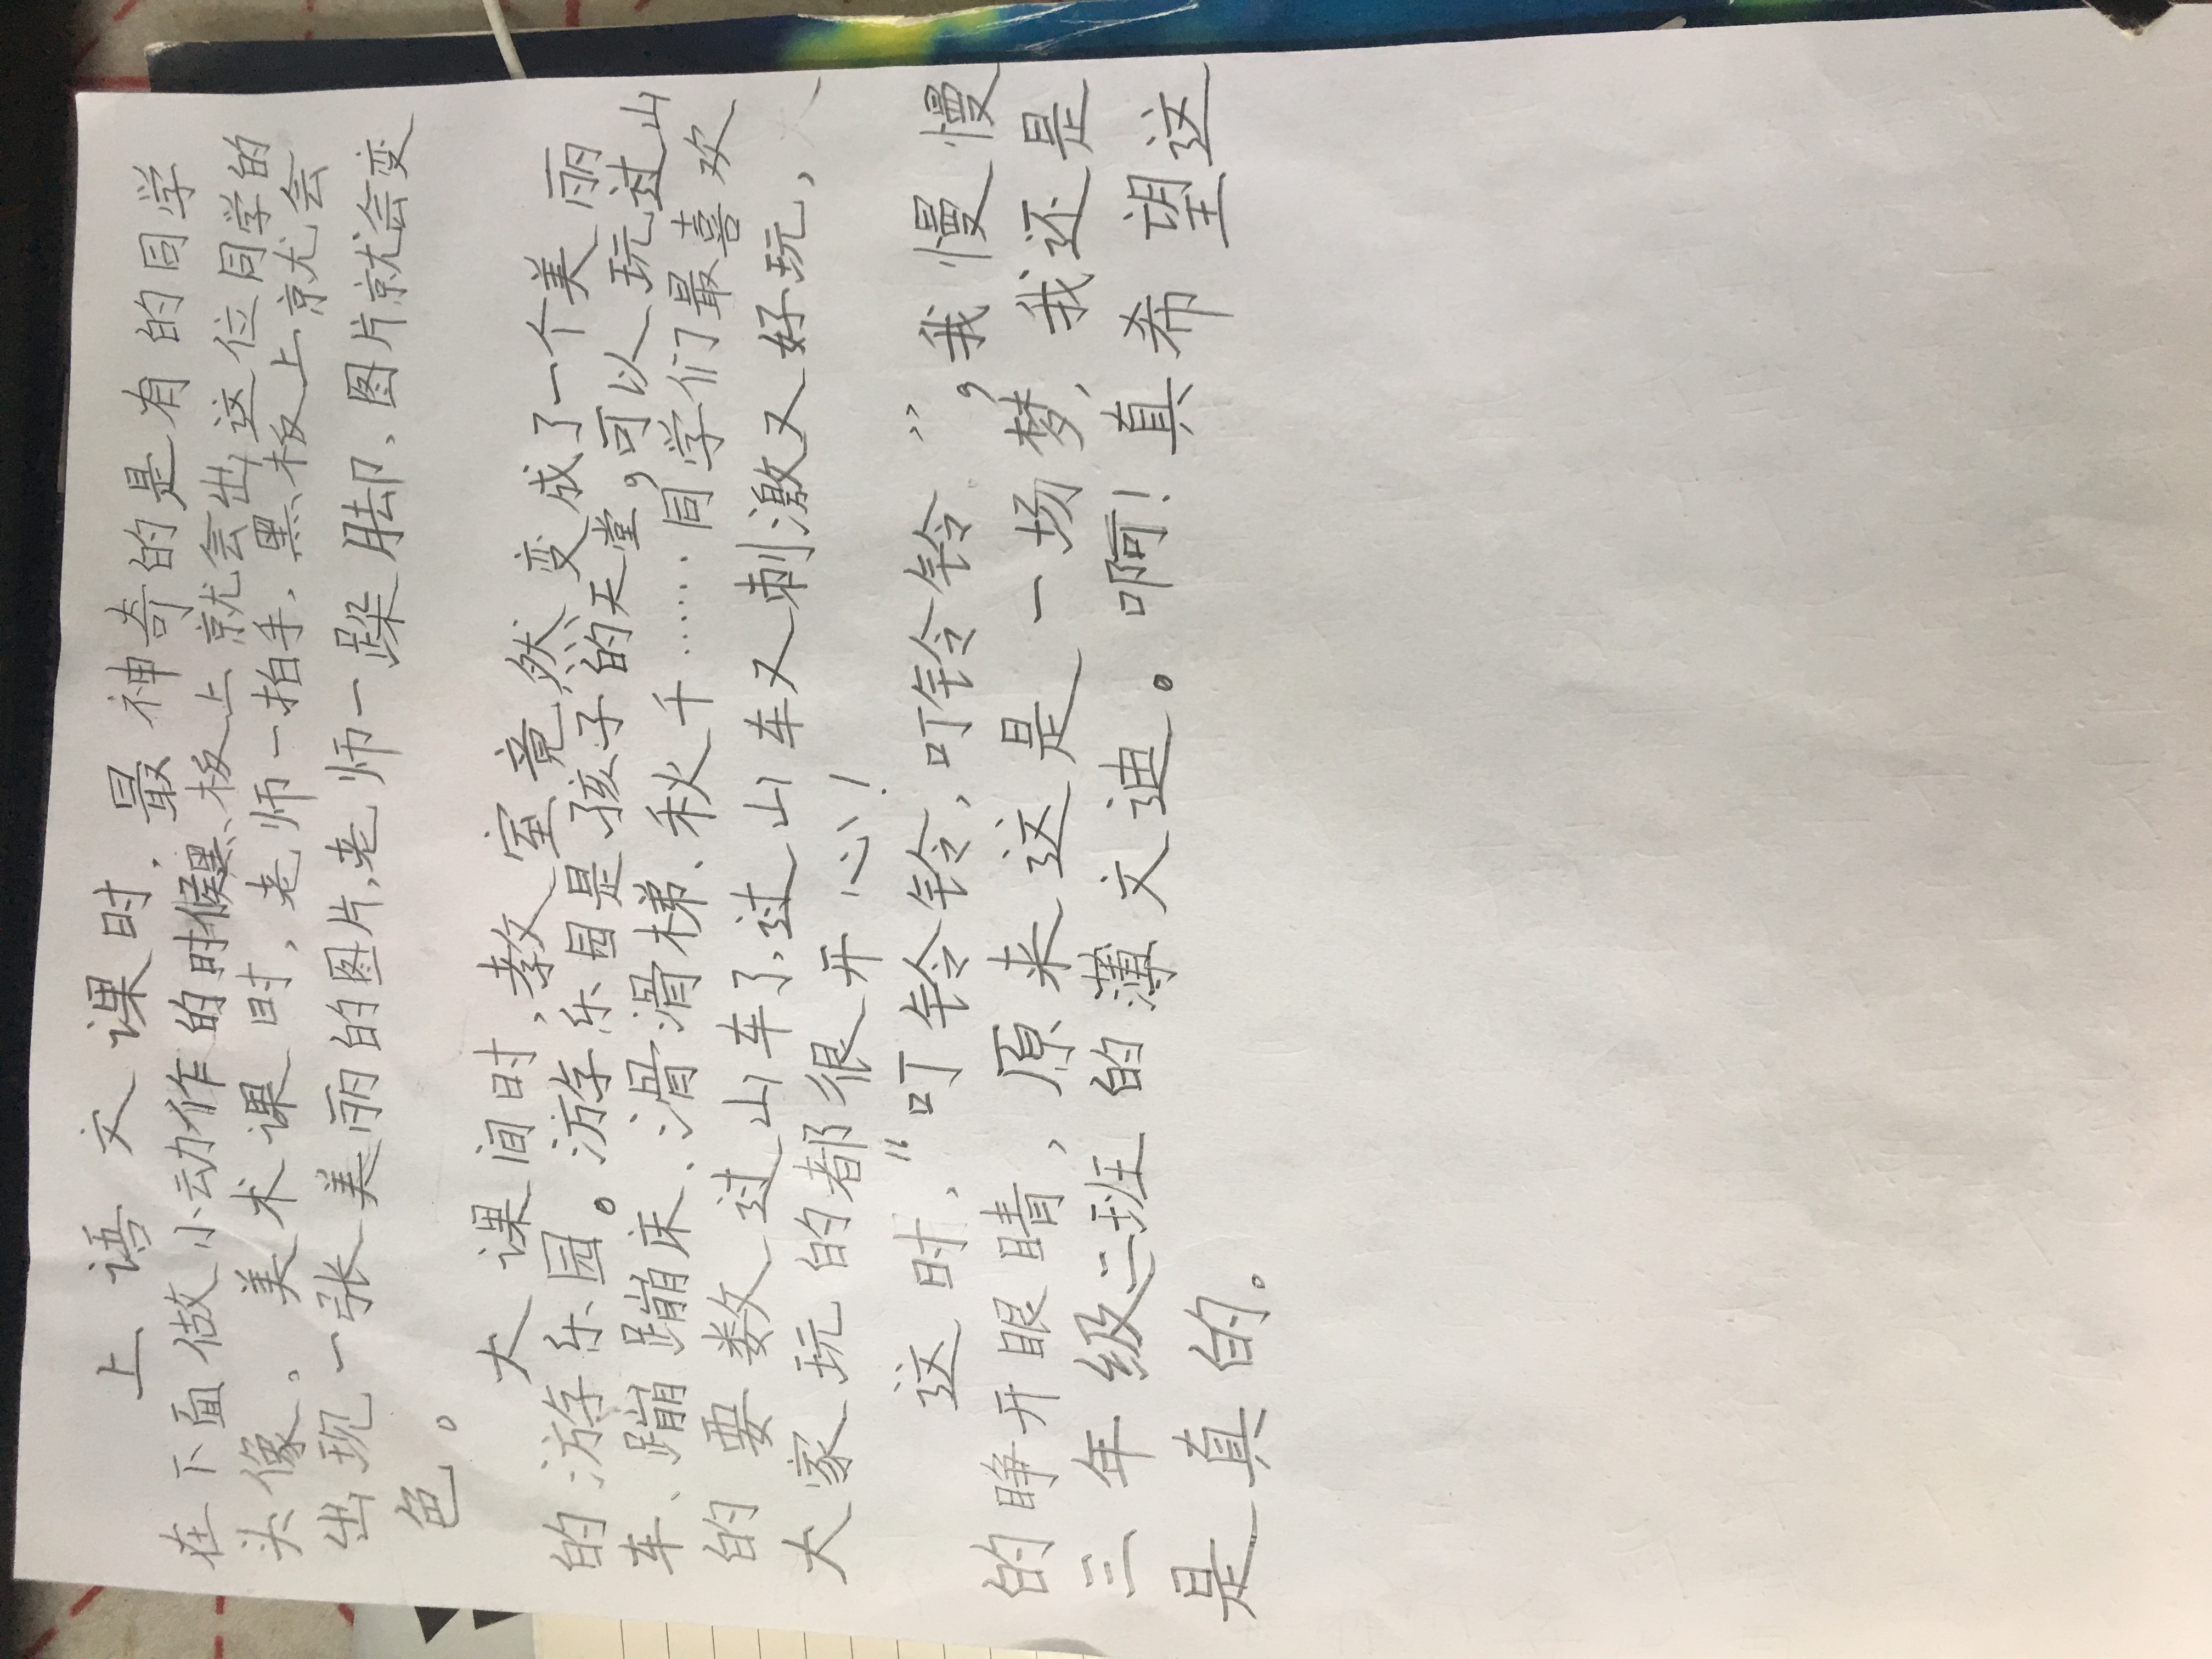 上语文课时,最神奇的是有的同学
在下面做小动作的时候黑板上就会出这位同学的
头像。美术课时,老师一拍手,黑板上就会
出现一张美丽的图片,老师一跺脚、图片就会变
色。
大课间时,教室竟然变成了一个美丽
的游乐园。游乐园是孩子的天堂,可以玩过山
车、蹦蹦床、滑滑梯、秋千……同学们最喜欢
的要数过山车了,过山车又刺激又好玩,
大家玩的都很开心!
这时,“叮铃铃,叮铃铃”,我慢慢
的睁开眼睛,原来这是一场梦、我还是
三年级二班的薄文迪。啊!真希望这
是真的。